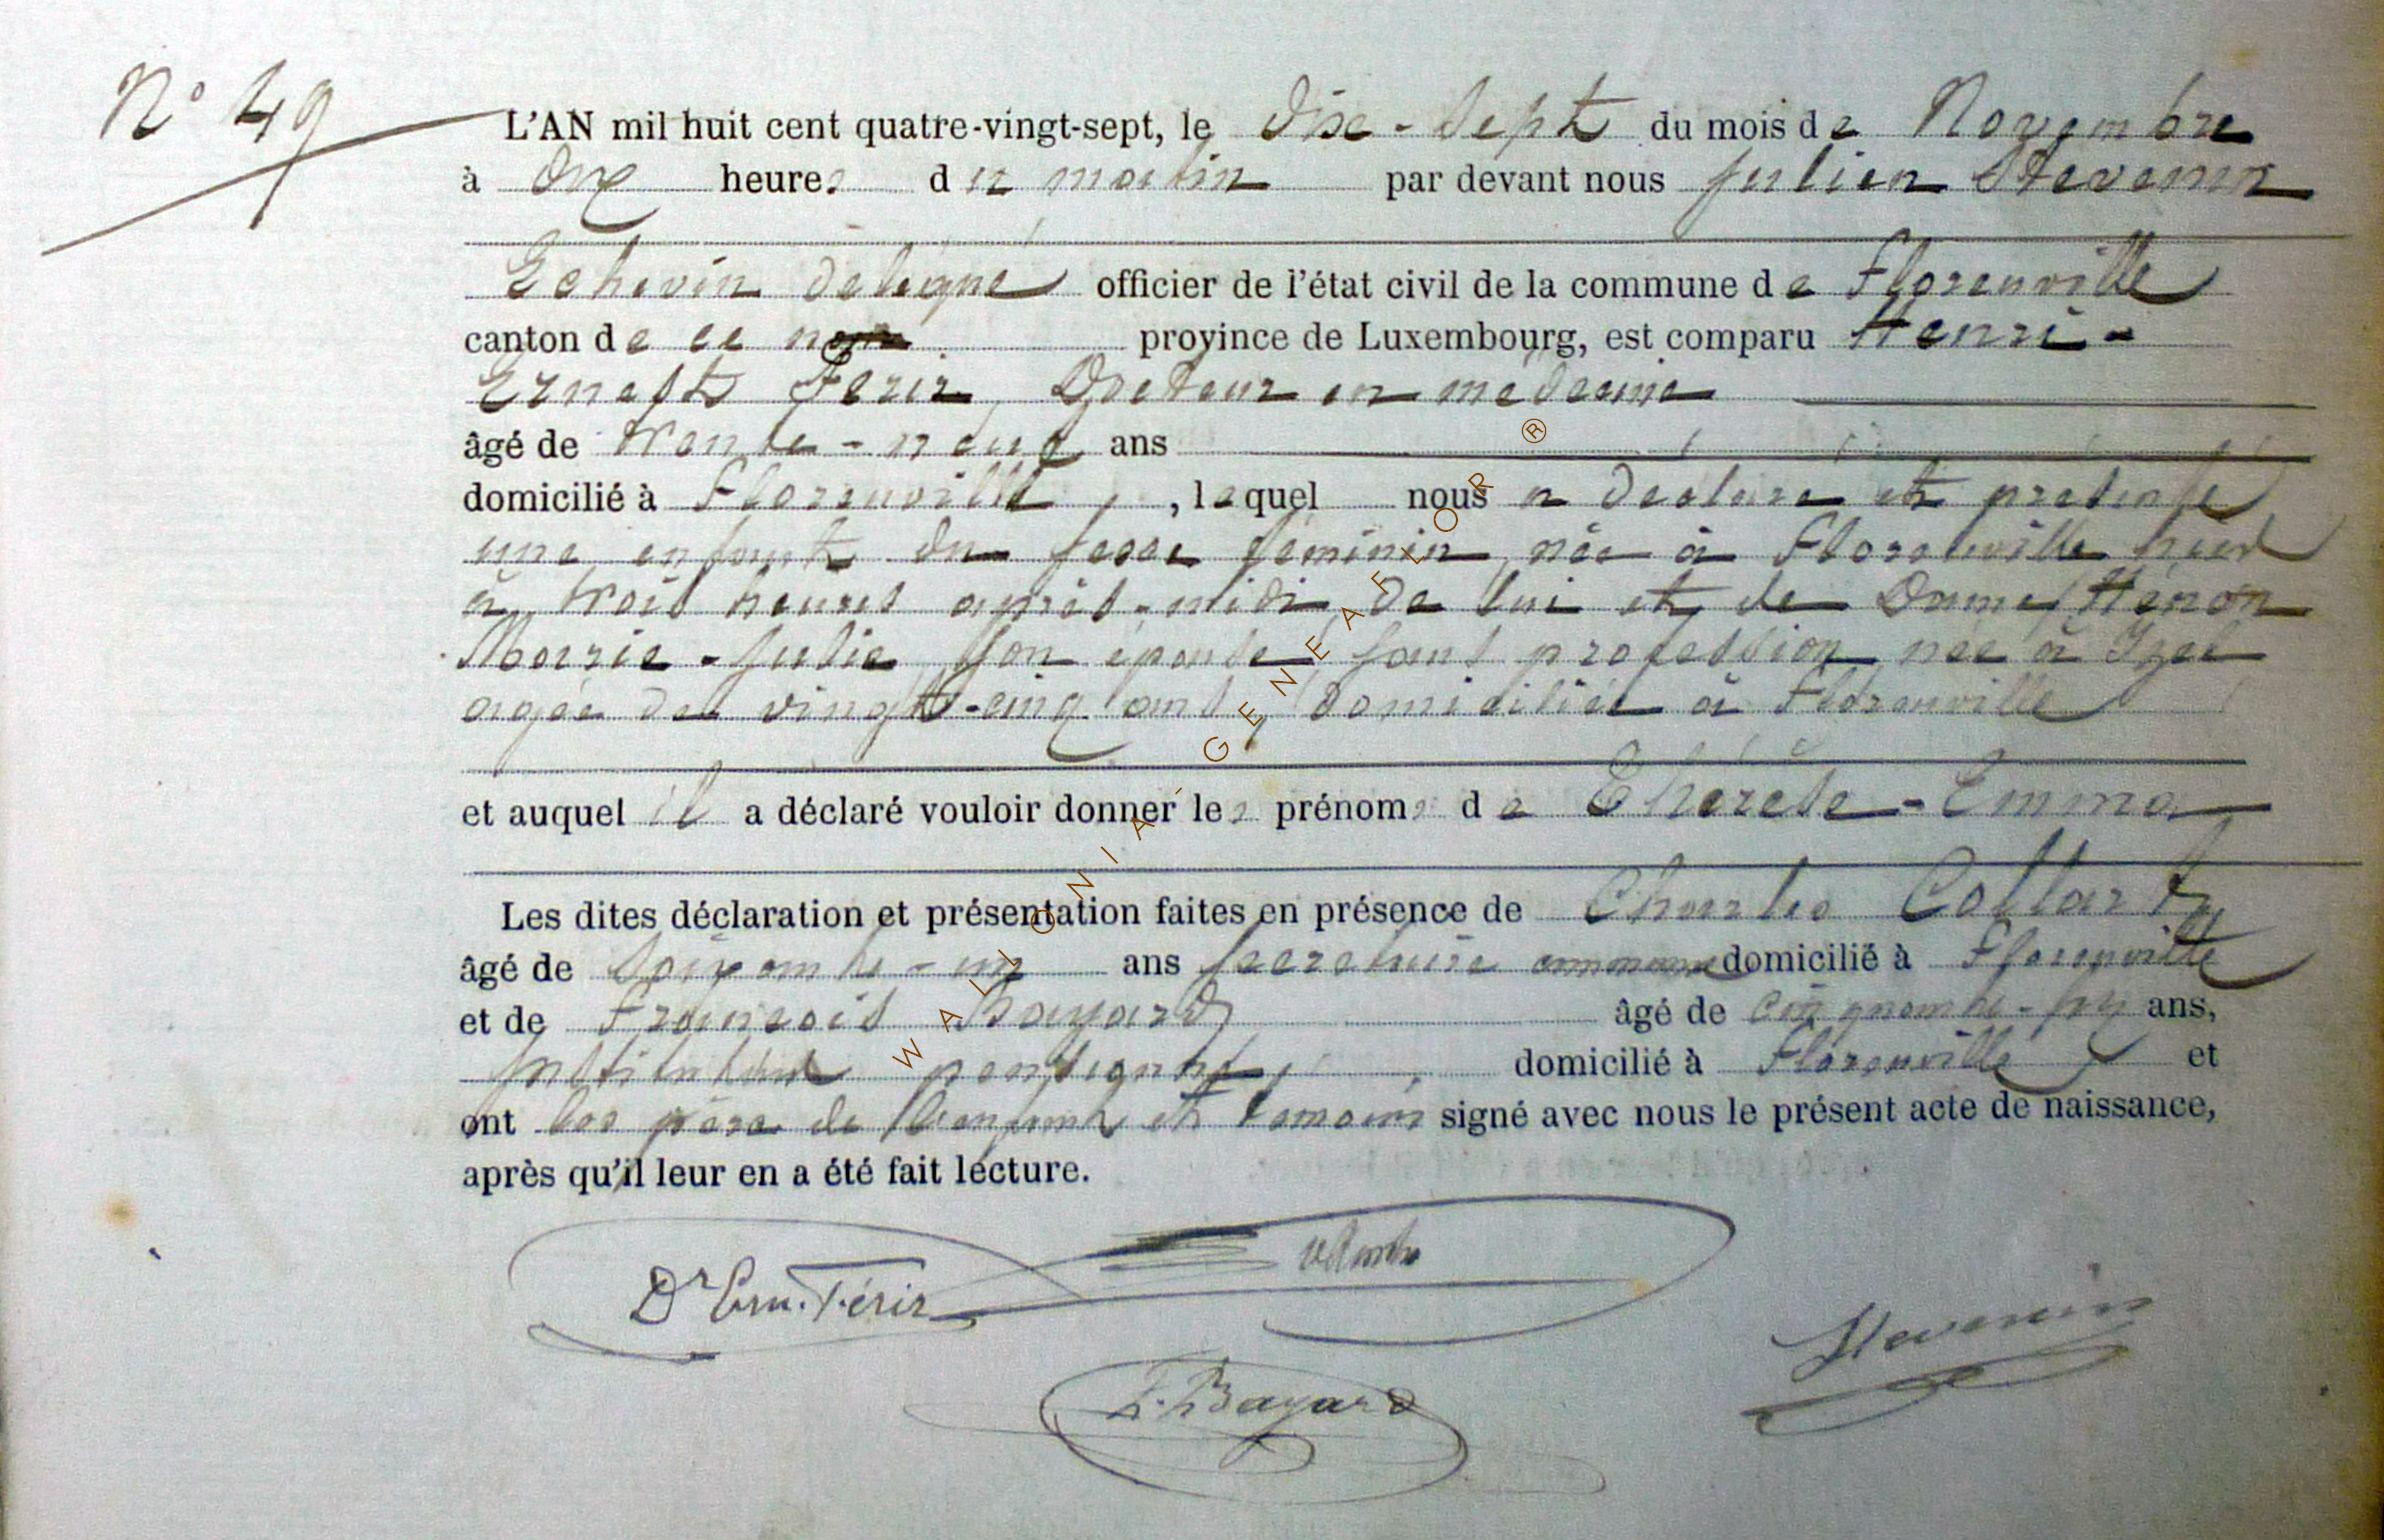 N° 49
L'AN mil huit cent quatre-vingt-sept, le dix-sept du mois de Novembre
à onze heures du matin par devant nous Julien Stevenin
Echevin délégué officier de l'état civil de la commune de Florenville
canton de ce nom province de Luxembourg, est comparu Henri-
Ernest Férir, Docteur en médecine
âgé de trente-neuf ans
domicilié à Florenville, lequel nous a déclaré et présenté
une enfant du sexe féminin, née à Florenville hier
à trois heures après-midi, de lui et de Dame Hénon
Marie-Julie son épouse, sans profession, née à Izel
agée de vingt-cinq ans, domiciliée à Florenville
et auquel il a déclaré vouloir donner les prénoms de Thérèse-Emma
Les dites déclaration et présentation faites en présence de Charles Collart
âgé de soixante-un ans secrétaire communal domicilié à Florenville
et de François Bayard âgé de cinquante- ans,
Instituteur pensionné, domicilié à Florenville et
ont les père de l'enfant et témoins signé avec nous le présent acte de naissance,
après qu'il leur en a été fait lecture.
Dr Ern. Férir
Stevenin
F. Bayard
WALLONIA GENEAFLOR ®